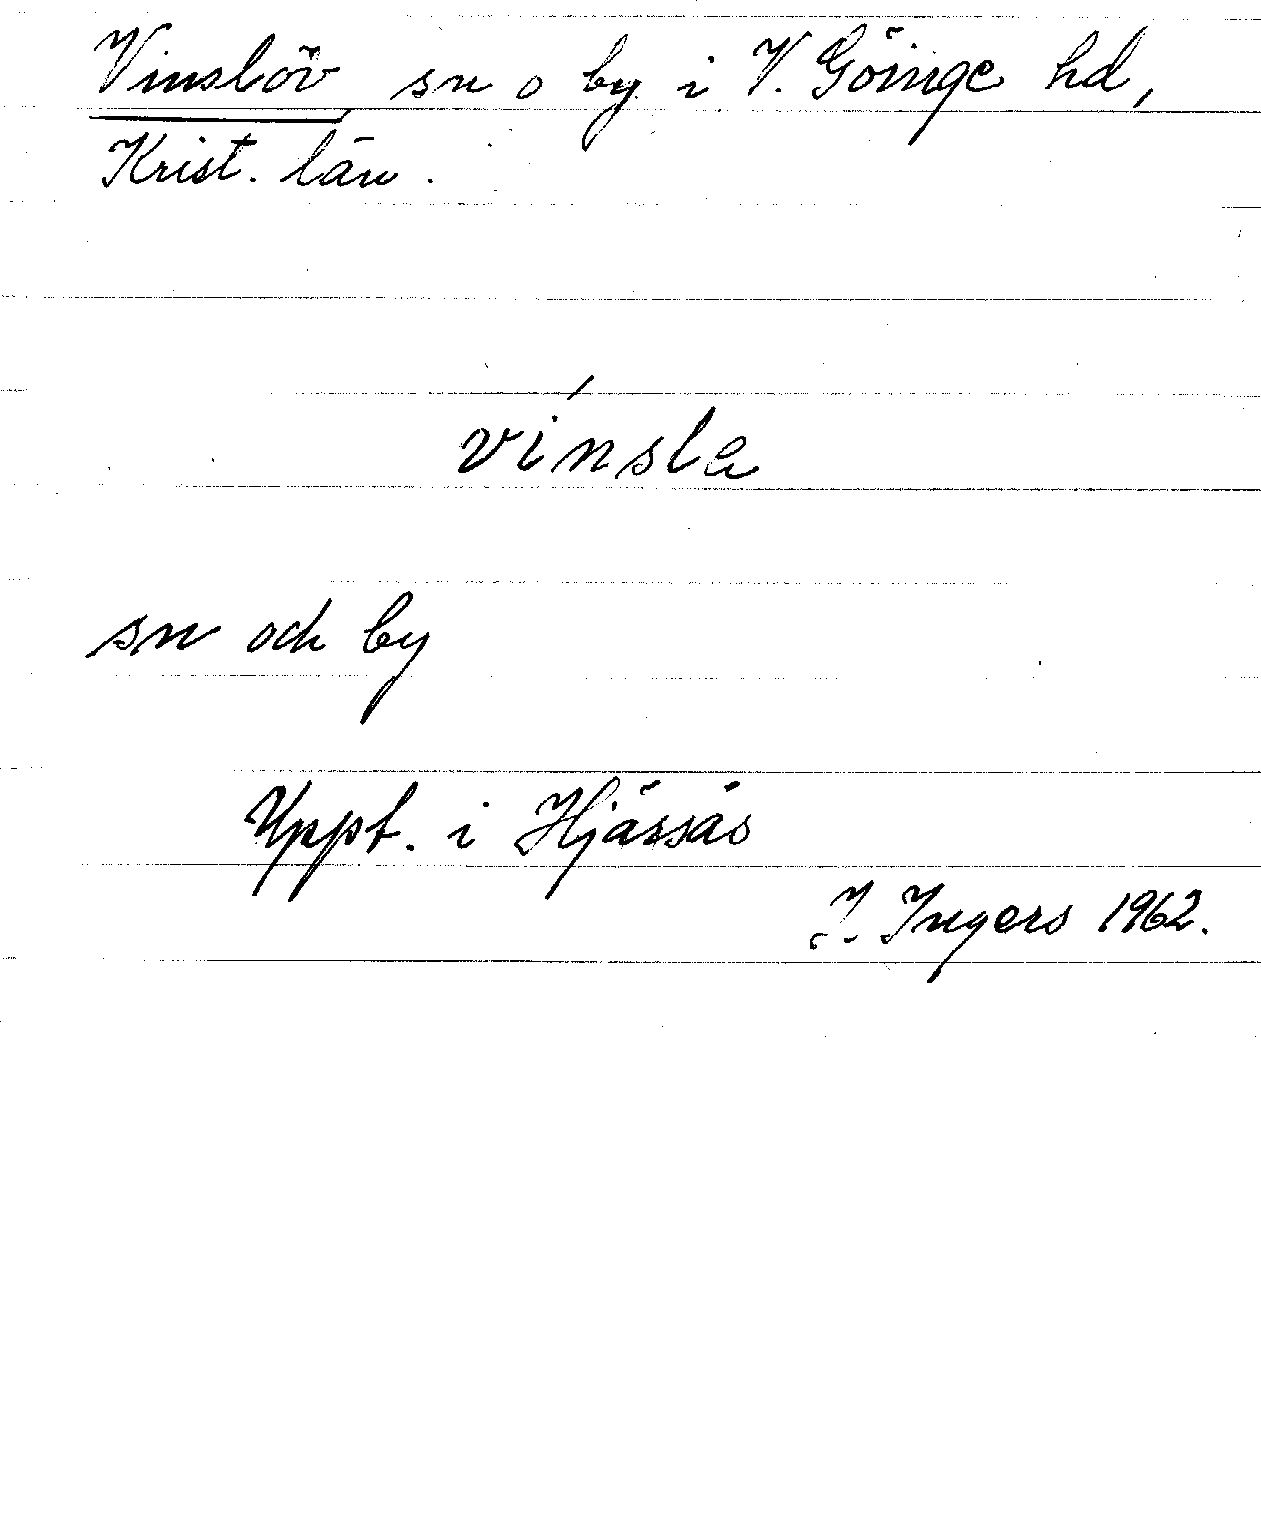 Vinslöv sn o by i V. Göinge hd,
Krist. län.
vínsla
sn och by
Uppt. i Hjärsås
I. Ingers 1962.